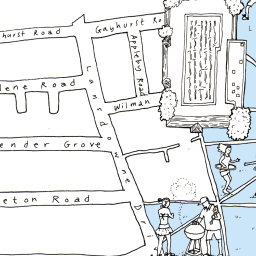 hurst Road
Gayhurst Ro
Appleby Road
dene Road
Wilman
Lansdowne Dri
ender Grove
eton Road
L